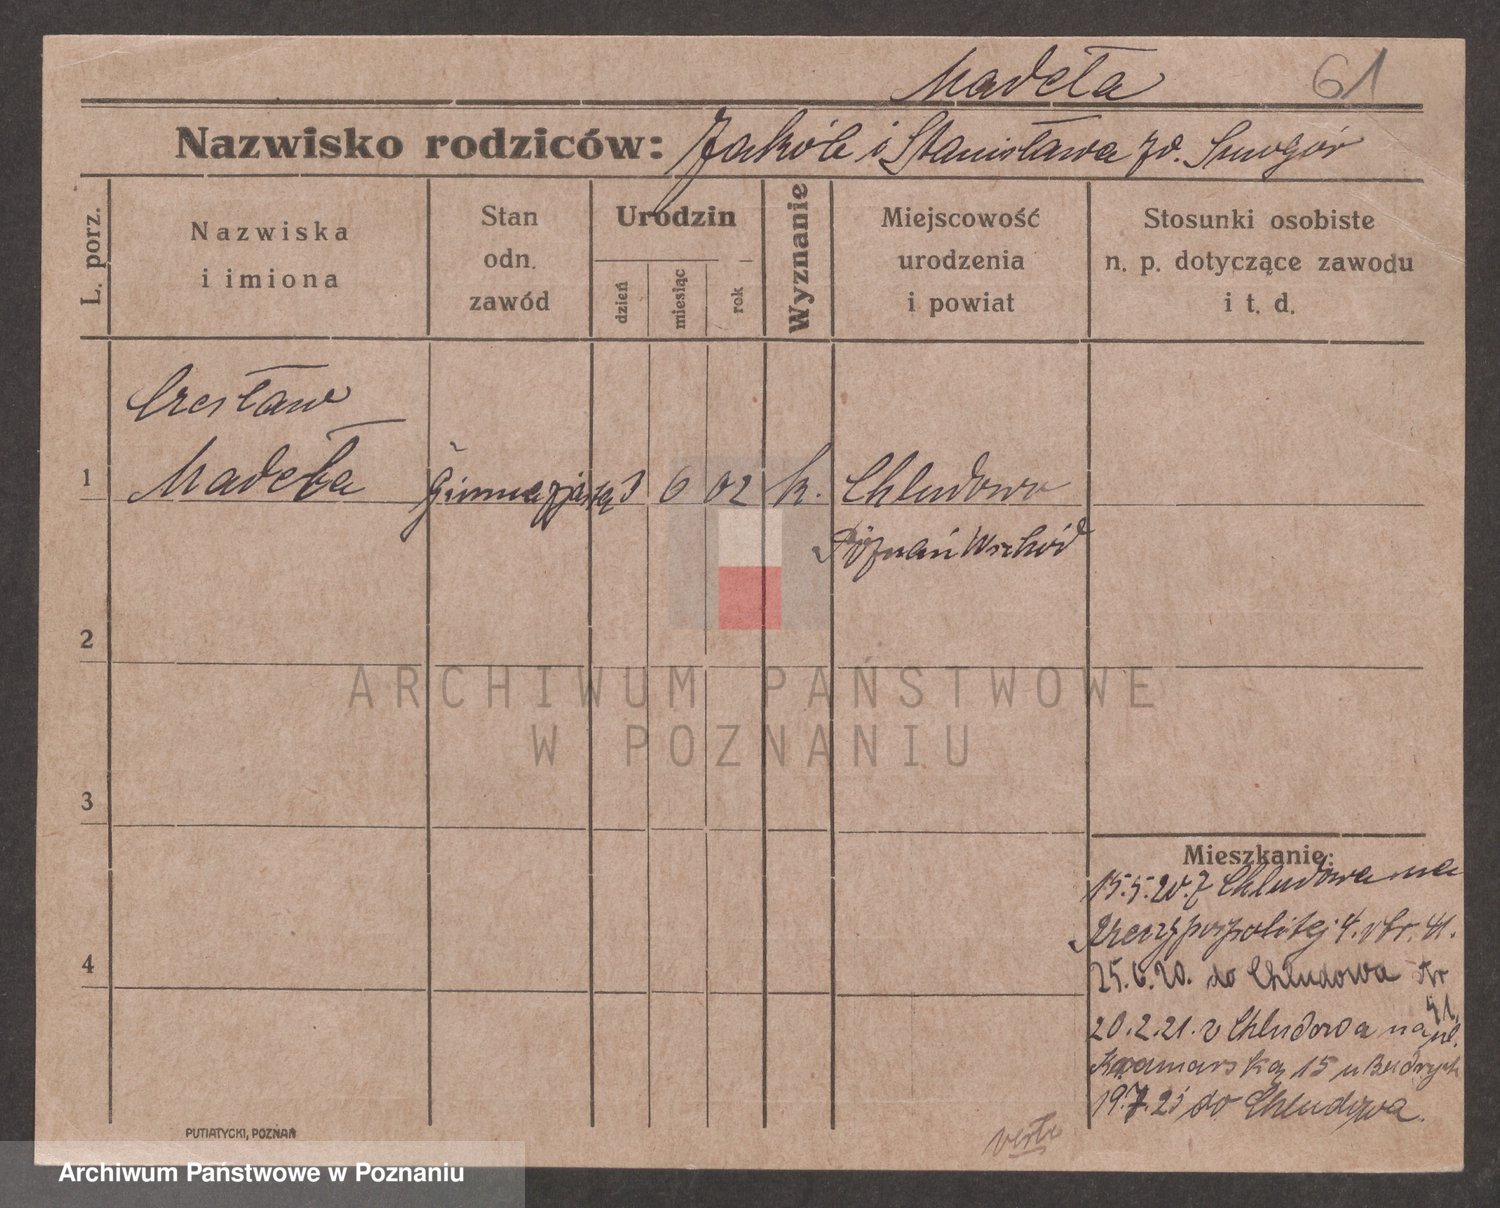 Madeła 61
Nazwisko rodziców: Jakób i Stanisława zd. Smogór
L. porz.
Nazwiska
i imiona
Stan
odn.
zawód
Urodzin
dzień
miesiąc
rok
Wyznanie
Miejscowość
urodzenia
i powiat
Stosunki osobiste
n. p. dotyczące zawodu
i t. d.
Czesław
1 Madeła 3 6 02 k. Chludowo
Poznań Wschód
2
ARCHIWUM PAŃSTWOWE
W POZNANIU
3
Mieszkanie:
15.5.20. z Chludowa na
Rzeczypospolitej 4.
4
25.6.20. do Chludowa Nr
51.
20.2.21. z Chludowa na ul.
15 u
19.7.21 do Chludowa.
verte
PUTIATYCKI, POZNAŃ
Archiwum Państwowe w Poznaniu